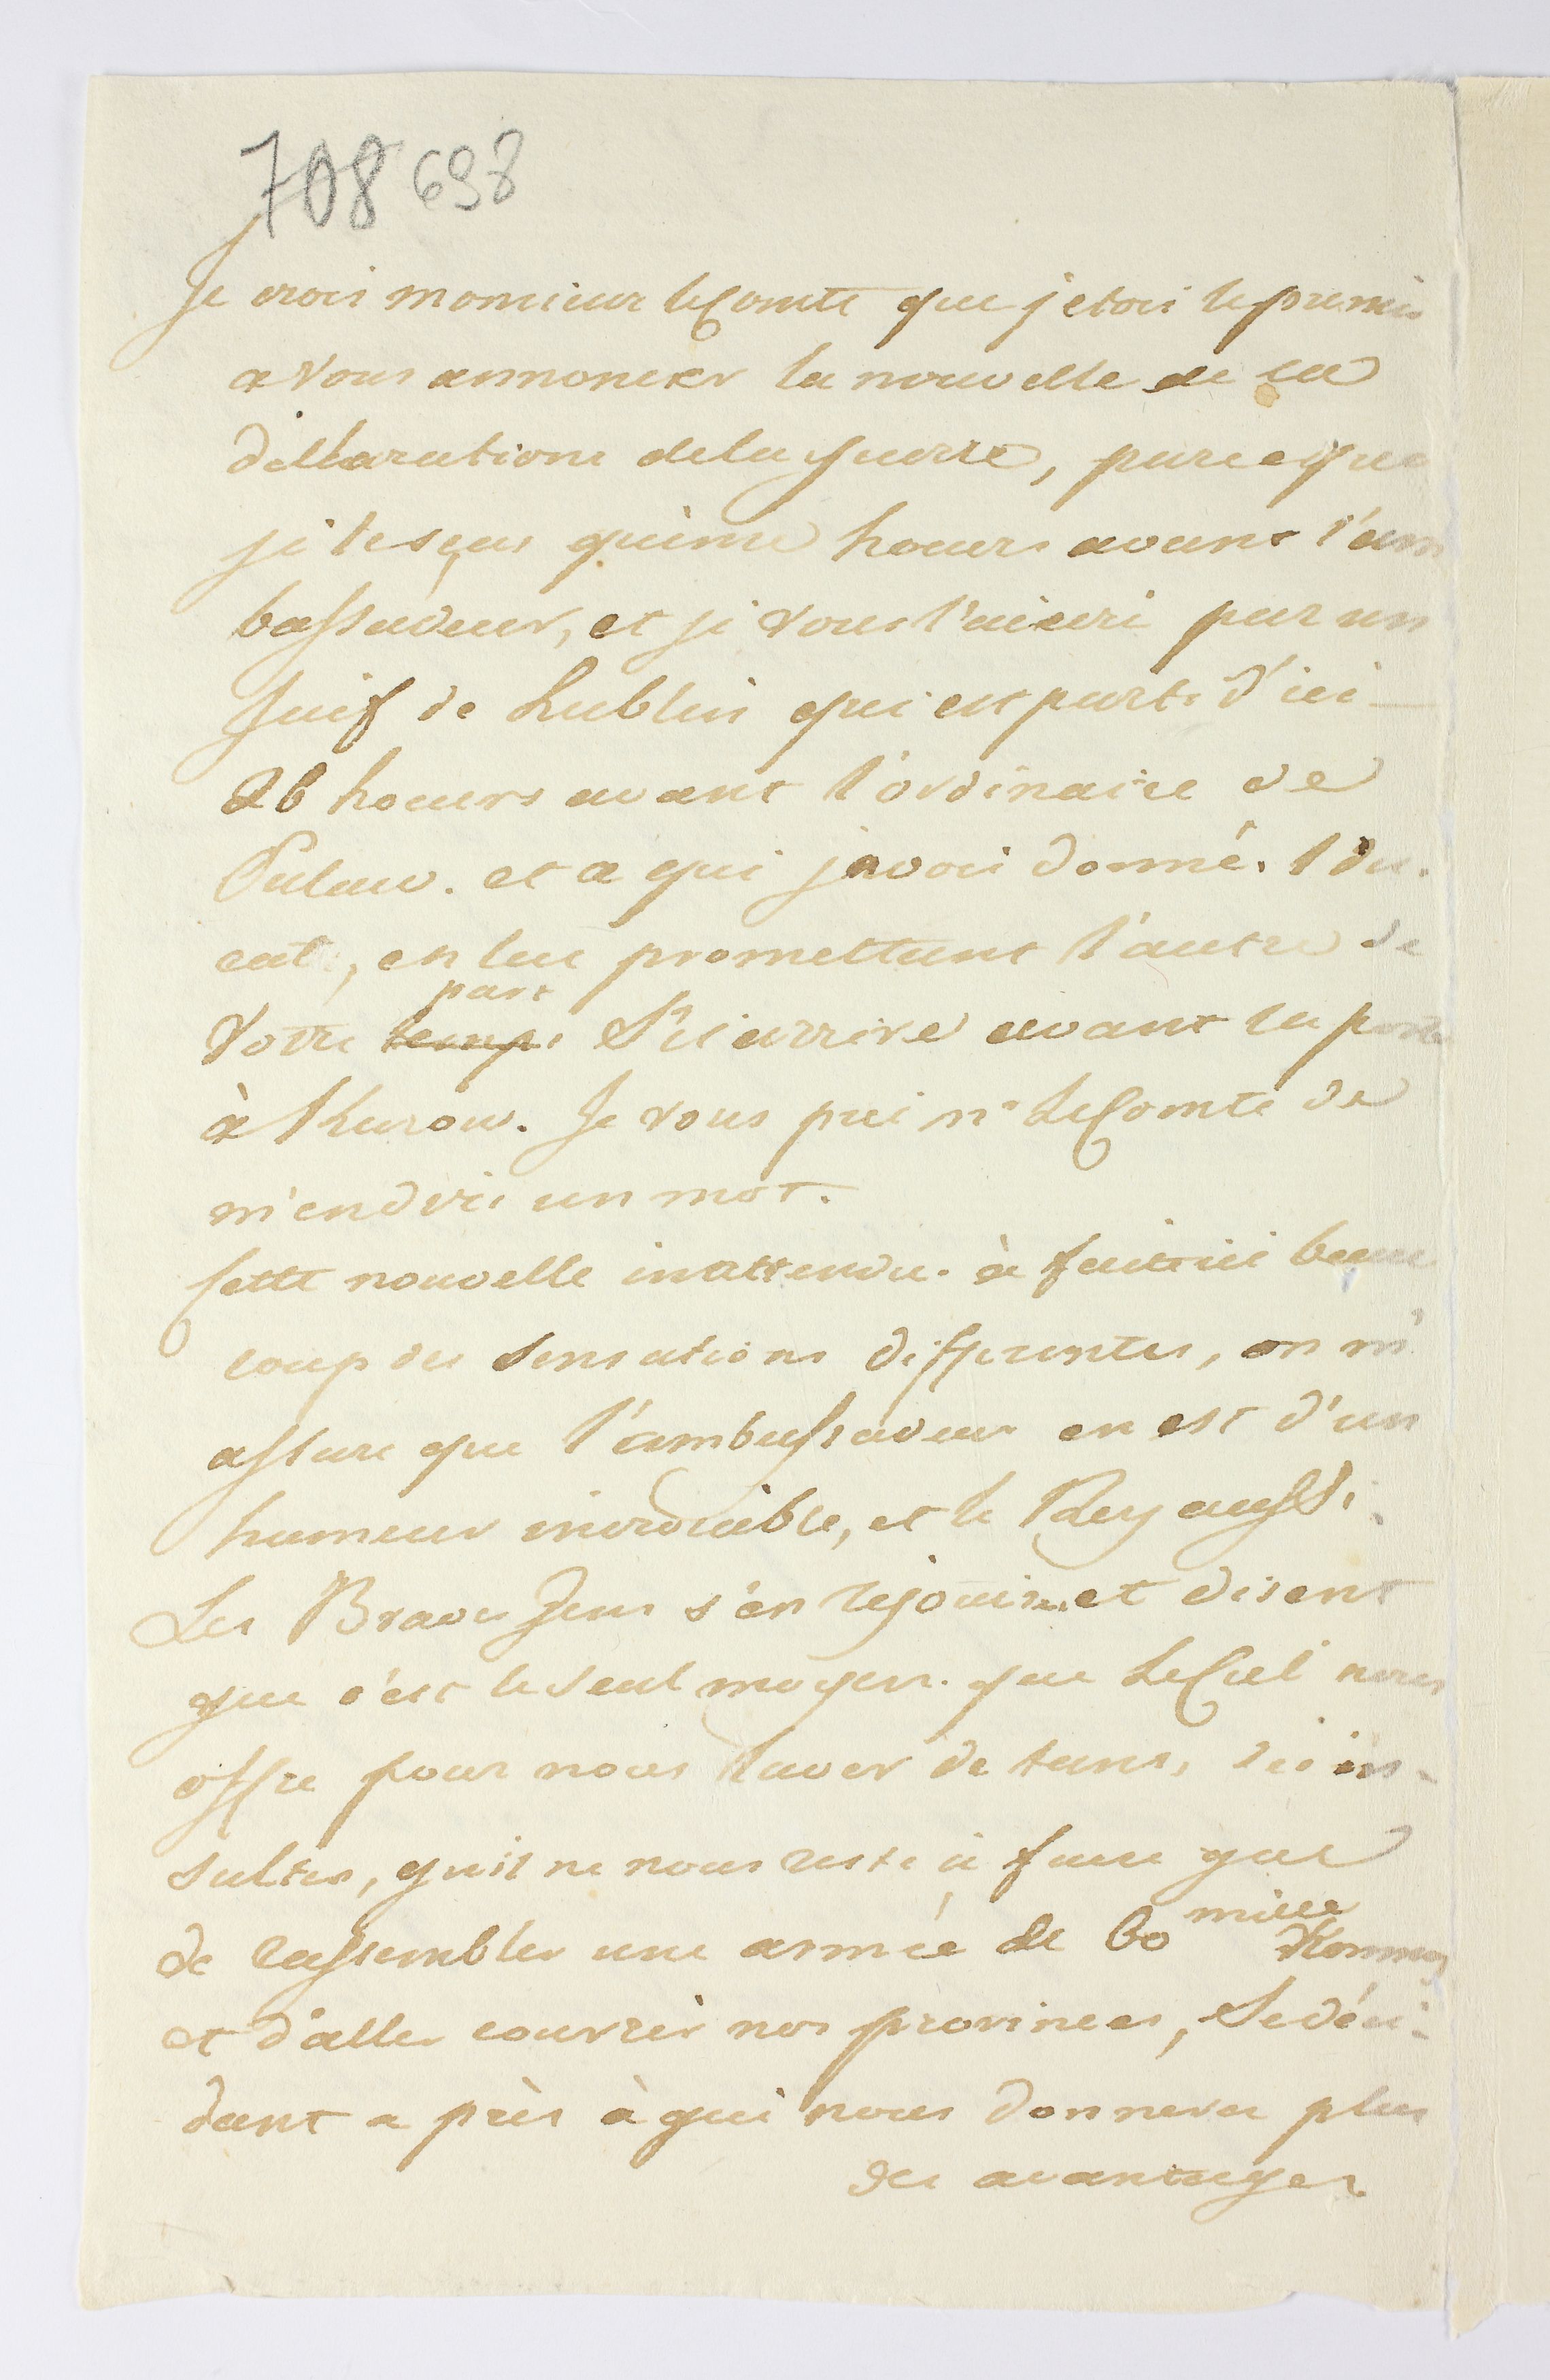 708 698
Je crois monsieur le Comte que j'etois le premie
a vous annoncer la nouvelle de la
déllarations de la guerre, parceque
je le sçus quinze houers avant l'am
bassadeur, et je vous l'aiecri par un
Juif de Lublin qui est parti d'ici
26 houers avant l'ordinaire de
Pulaw. et a qui j'avois donné. 1 du-
cat, en lui promettant l'autre de
votre temps part S'il arrive avant la poste
à Kurow. Je vous prie mr Le Comte de
m'en dire un mot.
Cette nouvelle inattendu. à fait ici beau
coup des sensations differentes, on m'
assure que l'ambassadeur en est d'un
humeur incroiable, et le Roy aussi.
Les Braves Jens s'en rejouis.. et disent
que c'est le seul moyen. que Le Ciel nous
offre pour nous laver de tans, des in-
sultes, qu'il ne nous reste à faire que
de rassembler une armée de 60 mille Homme
et d'aller couvrir nos provinces, Se déci-
dant a près à qui nous donnera plus
des avantages